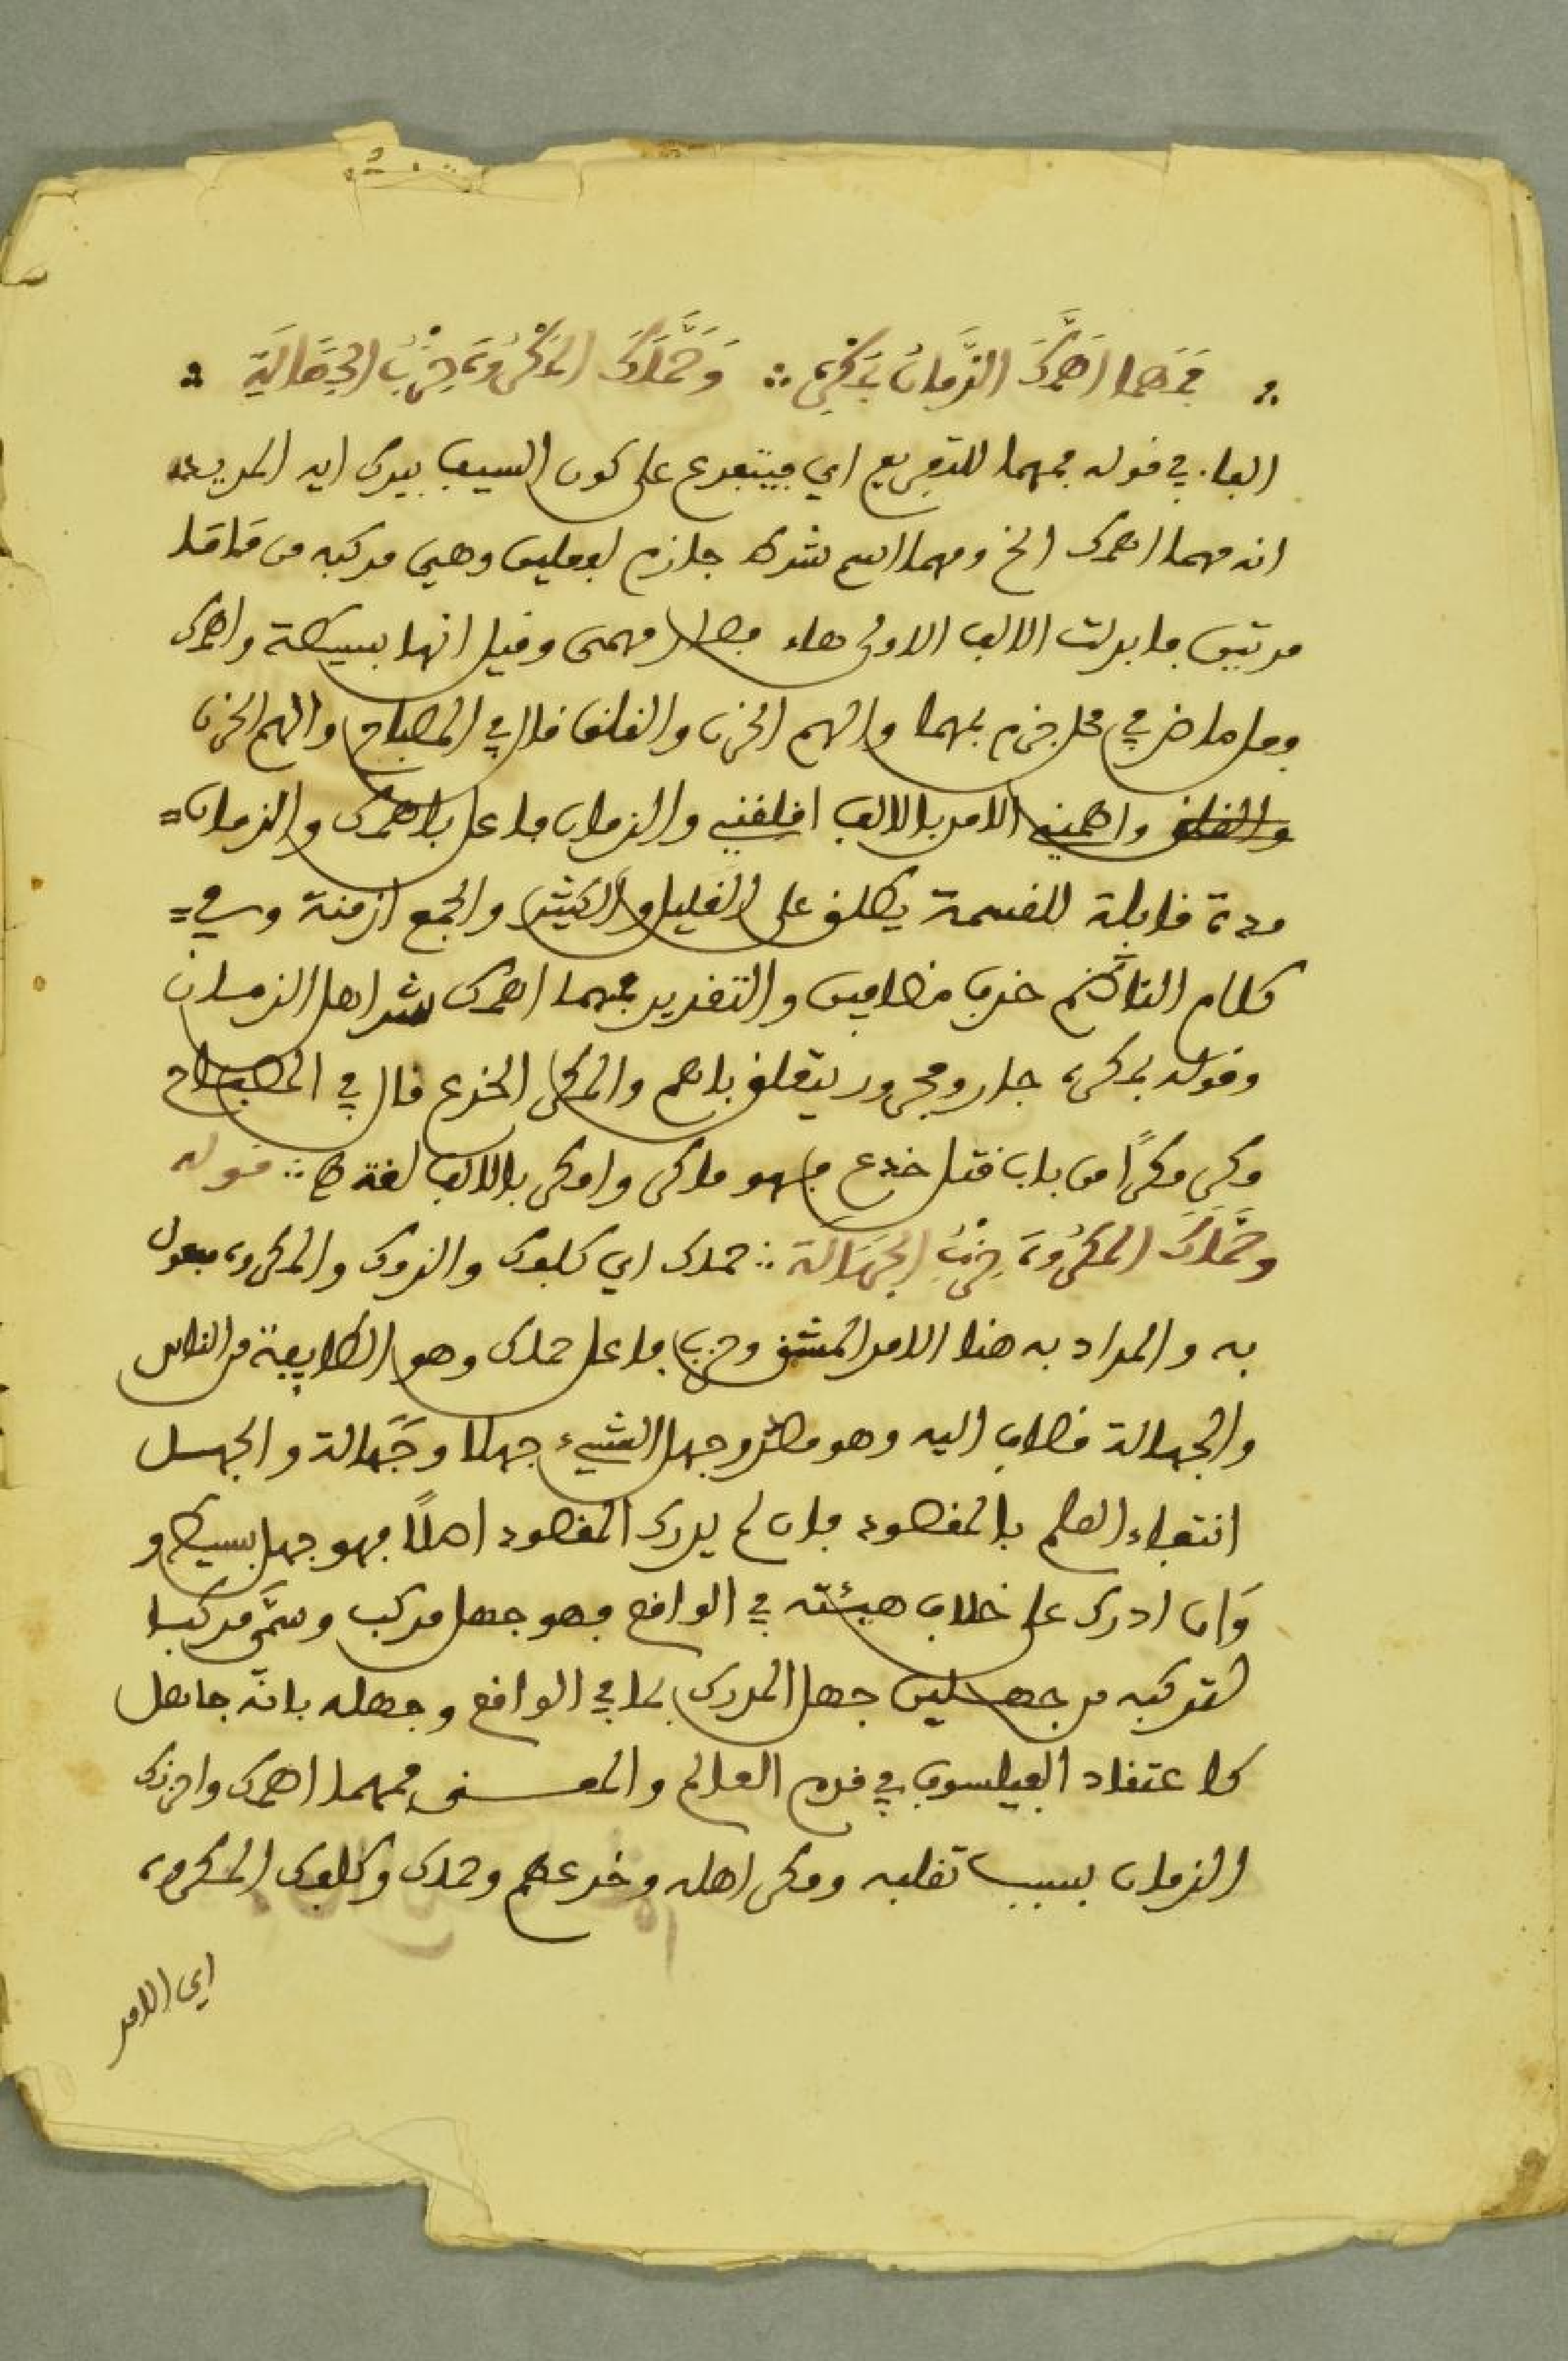 فمهما اَهَمَّكَ الزَّمَانُ بِمَكْرِهِ ∴ وَحَمَّلَكَ المَكْرُوهَ حِزْبُ الجَهَالَةِ ∴
الفاء في قوله فمهما للتفريع اي فيتفرع على كون السيف بيدك ايه المريد
انه مهما اهمك الخ ومهما اسم شرط جازم لفعلين وهي مركبه من مَا مَا
مرتين فابدلت الالف الاولى هاء فصار مهمى وقيل انها بسيطة واهمك
فعل ماض في محل جزم بمهما والهم الحزن والقلق قال في المصباح والهم الحزن
والقلق واهمنى الامر بالالف اقلقنى والزمان فاعل باهمك والزمان =
مدة قابلة للقسمة يطلق على القليل والكثير والجمع ازمنة وفي =
كلام الناظم حذف مضافين والتقدير فمهما اهمك شر اهل الزمان
وقوله بمكره جار ومجرور يتعلق باهم والمكر الخدع قال في المصباح
مكر مكرًا من باب قتل خدع فهو ماكر وامكر بالالف لغة ∴ قوله
وحَمَّلَكَ المكرُوهَ حِزْبُ الجَهَالَة ∴ حملك اي كلفك والزمك والمكروه مفعول
به والمراد به هنا الامر المشق وحزب فاعل حملك وهو الطايفة من الناس
والجهالة مضاف اليه وهو مصدر جهل الشيء جهلا وجَهَالة والجهل
انتفاء العلم بالمقصود فان لم يدرك المقصود اصلًا فهو جهل بسيط و
وَان ادرك على خلاف هيئته في الواقع فهو جهل مركب وسمَّى مركبا
لتركبه من جهلين جهل المدرك بما في الواقع وجهله بانّه جاهل
كاعتقاد الفيلسوف في قدم العالم والمعنى فمهما اهمك واحزنك
الزمان بسبب تقلبه ومكر اهله وخدعهم وحملك وكلفك المكروه
اي الامر